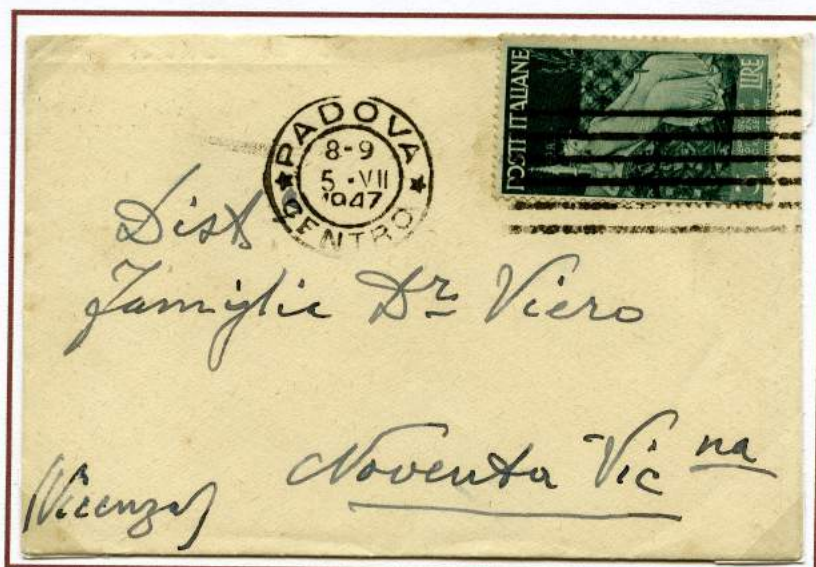 PADOVA
8-9
5 · VII
1947
CENTRO
POSTE ITALIANE
LIRE
3
Dist
Famiglie Dr Viero
Noventa Vic na
(Vicenza)